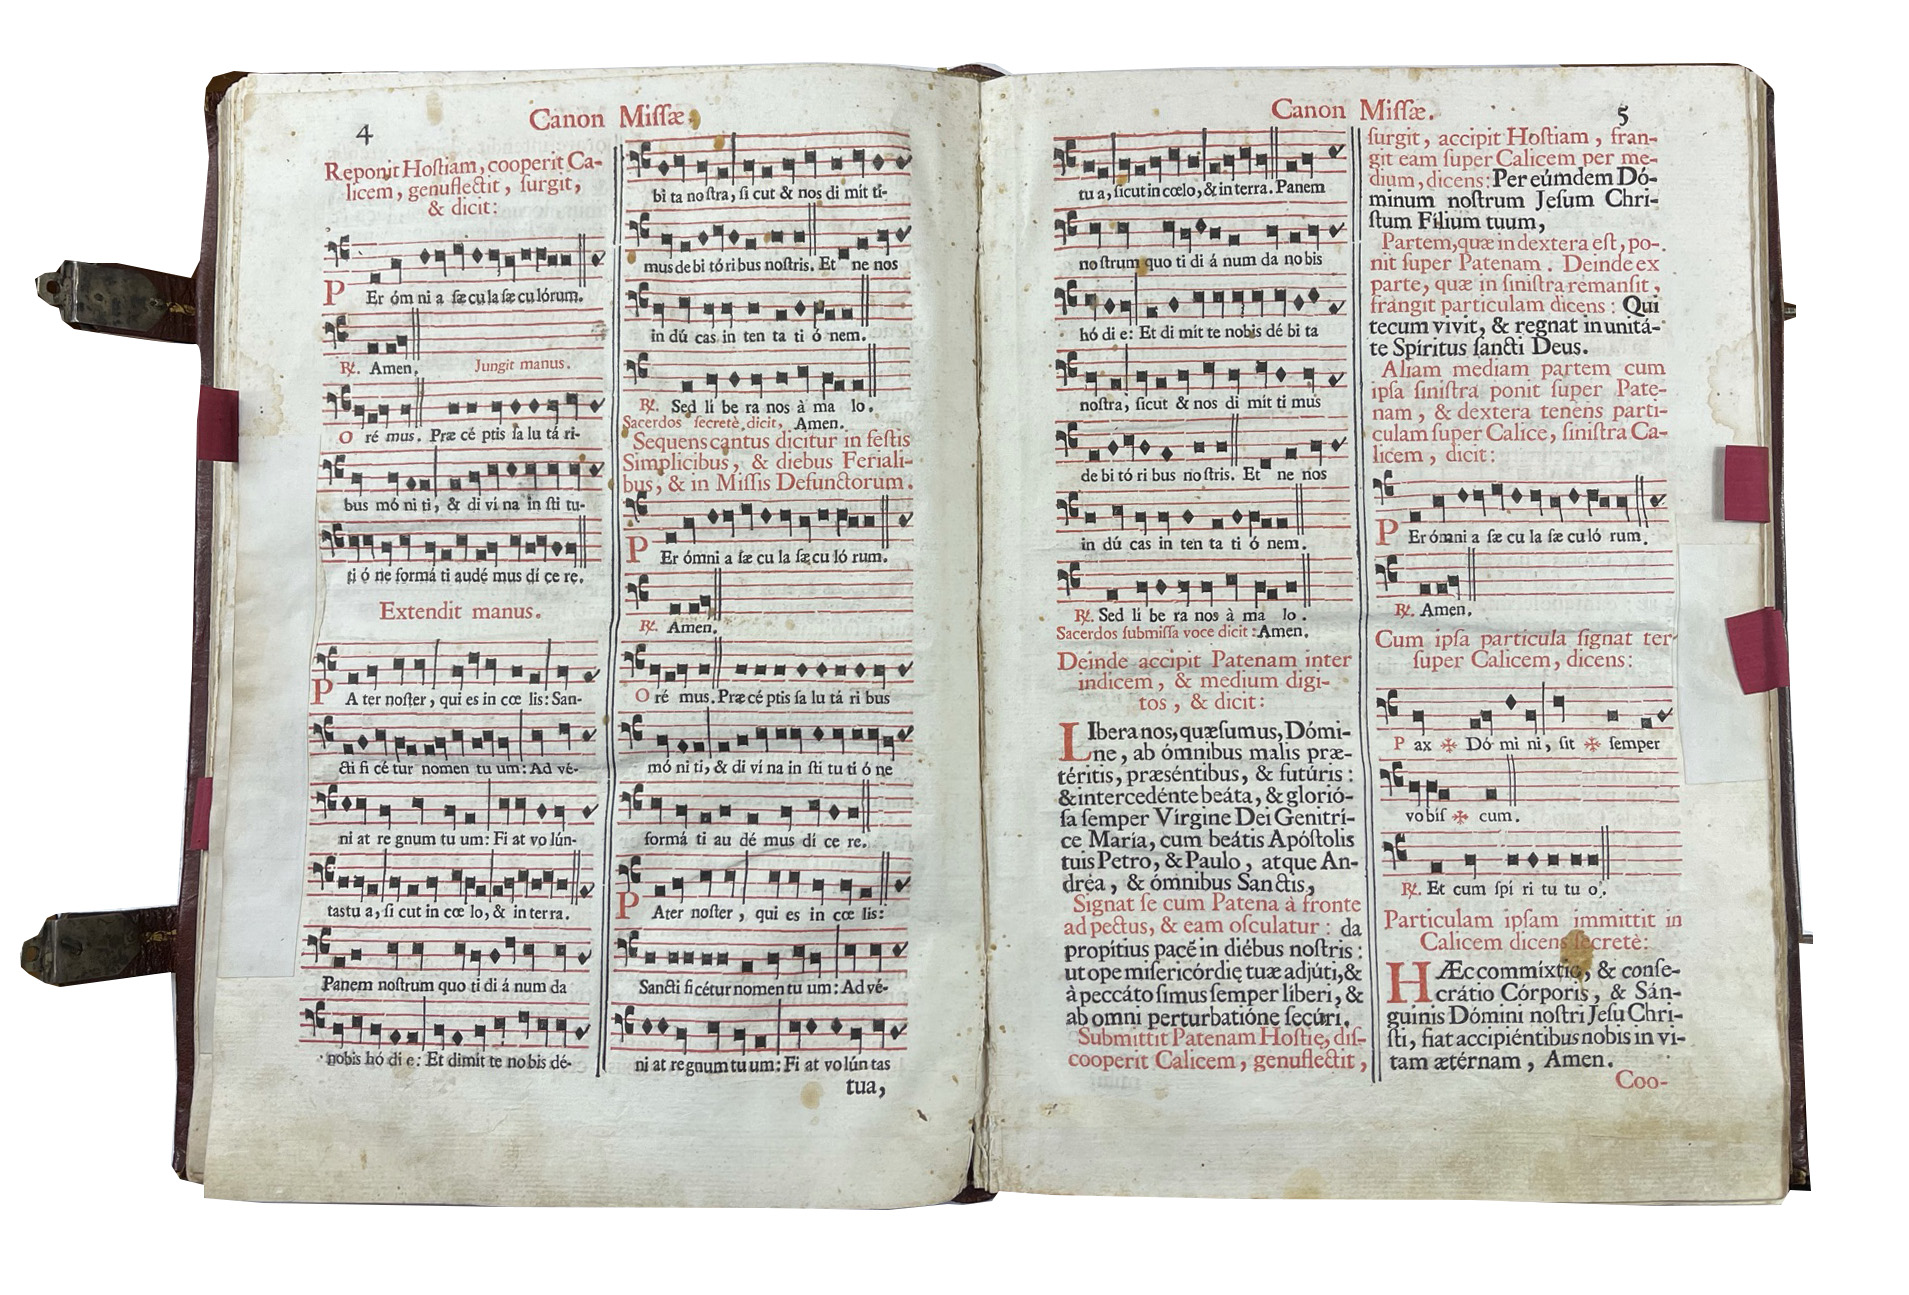 4
Canon Missæ.
Reponit Hostiam, cooperit Ca-
licem, genuflectit, surgit,
& dicit:
PEr óm ni a sæ cu la sæ cu lórum.
℟. Amen. Jungit manus.
O ré mus. Præ cé ptis sa lu tá ri-
bus mó ni ti, & di ví na in sti tu-
ti ó ne formá ti audé mus dí ce re.
Extendit manus.
PA ter noster, qui es in cœ lis: San-
cti fi cé tur nomen tu um: Ad vé-
ni at re gnum tu um: Fi at vo lún-
tas tu a, si cut in cœ lo, & in terra.
Panem nostrum quo ti di á num da
nobis hó di e: Et dimít te no bis dé-
bi ta no stra, si cut & nos di mít ti-
mus de bi tó ri bus nostris. Et ne nos
in dú cas in ten ta ti ó nem.
℟. Sed lí be ra nos à ma lo.
Sacerdos secretè dicit, Amen.
Sequens cantus dicitur in festis
Simplicibus, & diebus Feriali-
bus, & in Missis Defunctorum.
PEr ómni a sæ cu la sæ cu ló rum.
℟. Amen.
O ré mus. Præ cé ptis sa lu tá ri bus
mó ni ti, & di ví na in sti tu ti ó ne
formá ti au dé mus dí ce re.
PAter noster, qui es in cœ lis:
Sancti fi cétur nomen tu um: Ad vé-
ni at re gnum tu um: Fi at vo lún tas
tua,
Canon Missæ.
5
tu a, sicut in cœlo, & in terra. Panem
no strum quo ti di á num da nobis
hó di e: Et di mít te nobis dé bi ta
nostra, sicut & nos di mít ti mus
de bi tó ri bus no stris. Et ne nos
in dú cas in ten ta ti ó nem.
℟. Sed lí be ra nos à ma lo.
Sacerdos submissa voce dicit: Amen.
Deinde accipit Patenam inter
indicem, & medium digi-
tos, & dicit:
LIbera nos, quæsumus, Dómi-
ne, ab ómnibus malis præ-
téritis, præséntibus, & futúris:
& intercedénte beáta, & glorió-
sa semper Virgine Dei Genitrí-
ce María, cum beátis Apóstolis
tuis Petro, & Paulo, atque An-
dréa, & ómnibus Sanctis,
Signat se cum Patena à fronte
ad pectus, & eam osculatur: da
propítius pacẽ in diébus nostris:
ut ope misericórdię tuæ adjúti, &
à peccáto simus semper líberi, &
ab omni perturbatióne secúri.
Submittit Patenam Hostię, dis-
cooperit Calicem, genuflectit,
surgit, accipit Hostiam, fran-
git eam super Calicem per me-
dium, dicens: Per eúmdem Dó-
minum nostrum Jesum Chri-
stum Fílium tuum,
Partem, quæ in dextera est, po-
nit super Patenam. Deinde ex
parte, quæ in sinistra remansit,
frangit particulam dicens: Qui
tecum vivit, & regnat in unitá-
te Spíritus sancti Deus.
Aliam mediam partem cum
ipsa sinistra ponit super Pate-
nam, & dextera tenens parti-
culam super Calice, sinistra Ca-
licem, dicit:
PEr ómni a sæ cu la sæ cu ló rum.
℟. Amen.
Cum ipsa particula signat ter
super Calicem, dicens:
P ax ✠ Dó mi ni, sit ✠ semper
vo bis ✠ cum.
℟. Et cum spí ri tu tu o.
Particulam ipsam immittit in
Calicem dicens secretè:
HÆc commíxtio, & conse-
crátio Córporis, & Sán-
guinis Dómini nostri Jesu Chri-
sti, fiat accipiéntibus nobis in vi-
tam ætérnam, Amen.
Coo-